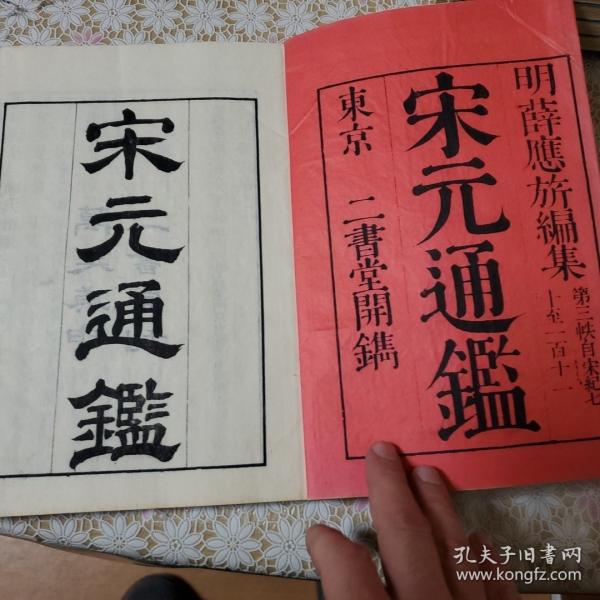 明薛應旂編集
第三帙自宋紀七
十至一百十一
宋元通鑑
東京 二書堂開鐫
宋元通鑑
孔夫子旧书网
www.kongfz.com